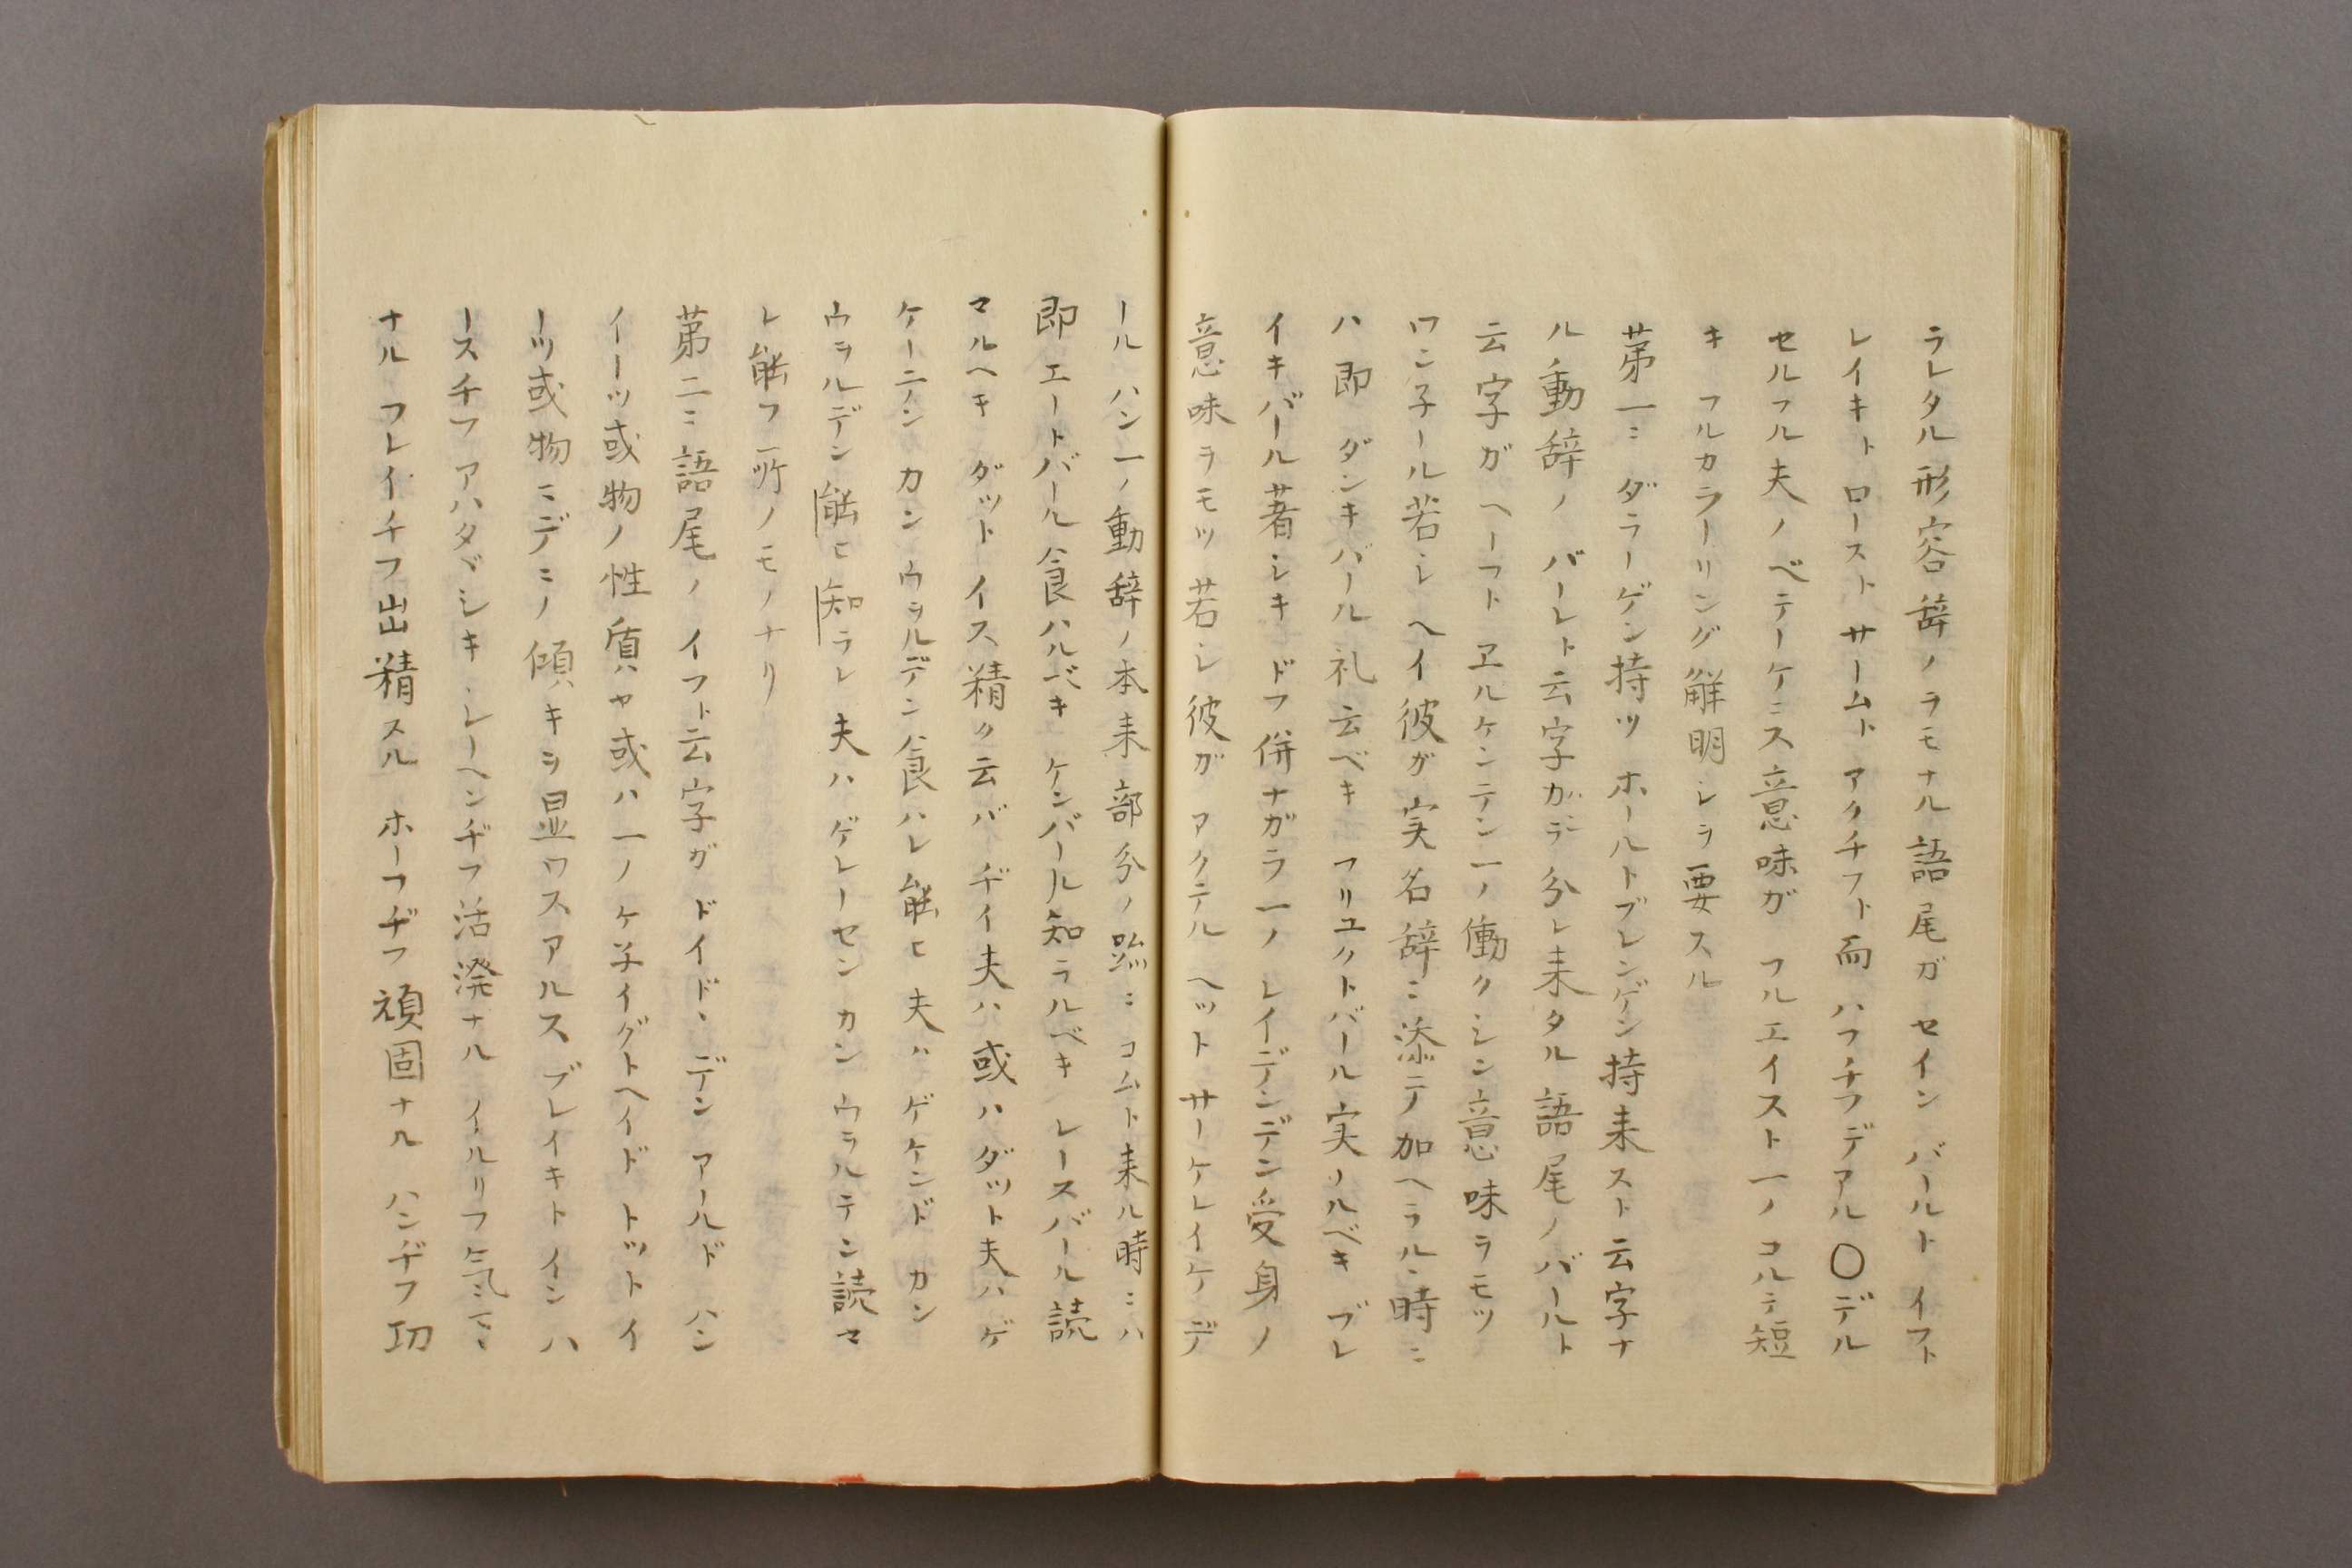 ラレタル形容辞ノラモナル語尾ガ セイン バールト イフト
レイキト ロースト サームト アクチフト 而 ハフチフデアル〇デル
セルフル夫ノ ベテーケニス意味ガ フルエイスト一ノ コルテ短
キ フルカラーリング解明シヲ要スル
苐一ニ ダラーゲン持ツ ホールトブレンゲン持来スト云字ナ
ル動辞ノ バーレト云字カラ分レ来タル語尾ノバールト
云字ガ ヘーフト ヱルケンテン一ノ働クシン意味ヲモツ
ワン子ール若シ ヘイ彼ガ実名辞ニ添テ加ヘラル丶時ニ
ハ即 ダンキバール礼云ベキ フリユクトバール実ノルベキ ブレ
イキバール著シキ ドフ併ナガラ一ノ レイデンデン受身ノ
意味ヲモツ若シ彼ガ アクテル ヘット サーケレイケ デ
ール ハン一ノ動辞ノ本来部分ノ跡ニ コムト来ル時ニハ
即 エートバール食ハルベキ ケンバール知ラルベキ レースバール読
マルヘキ ダット イス精ク云バ ヂイ夫ハ或ハダット夫ハゲ
ケーテン カン ウヲルデン食ハレ能ヒ 夫ハ ゲケンド カン
ウヲルデン能ヒ知ラレ 夫ハ ゲレーセン カン ウヲルテン読マ
レ能フ所ノモノナリ
苐二ニ語尾ノ イフト云字ガ ドイド丶デン アールド ハン
イーツ或物ノ性質ヤ或ハ一ノ ケ子イグトヘイド トット イ
ーツ或物ニデニノ傾キヲ显ワスアルス ブレイキト イン ハ
ースチフ アハタヾシキ レーヘンヂフ活溌ナル イールリフ気ニ
ナル フレイチフ出精スル ホーフヂフ頑固ナル ハンヂフ功